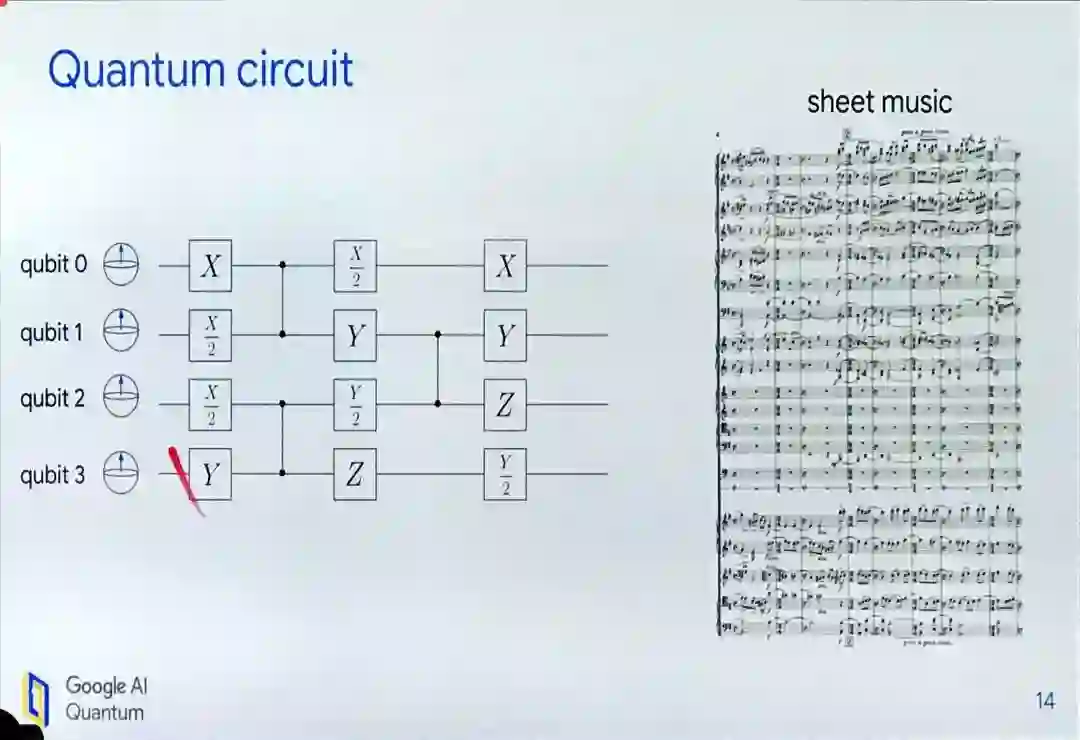 Quantum circuit
sheet music
qubit 0 X X/2 X
qubit 1 X/2 Y Y
qubit 2 X/2 Y/2 Z
qubit 3 Y Z Y/2
Google AI
Quantum
14